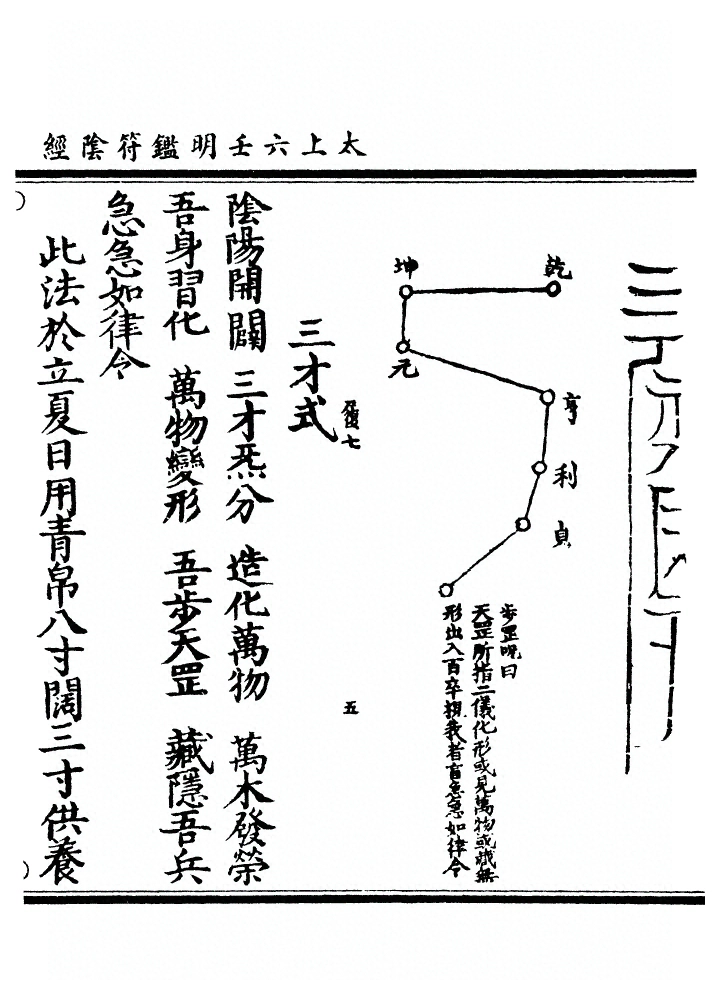 太上六壬明鑑符陰經
乾
坤
元
亨
利
貞
步罡呪曰
天罡所指二儀化形或見萬物或藏無
形出入百卒我者盲急急如律令
五
三才式 七
陰陽開闢 三才炁分 造化萬物 萬木發榮
吾身習化 萬物變形 吾步天罡 藏隱吾兵
急急如律令
此法於立夏日用青帛八寸闊三寸供養